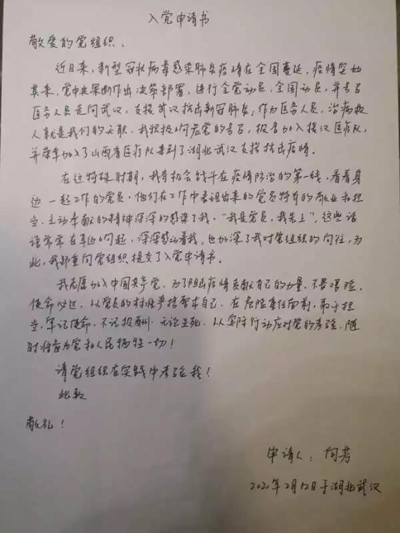 入党申请书
敬爱的党组织:
近日来,新型冠状病毒感染肺炎疫情在全国蔓延,疫情突如
其来,党中央果断作出决策部署,进行全党动员,全国动员,并号召
医务人员走向武汉,支援武汉抗击新冠肺炎,作为医务人员,治病救
人就是我们的天职,我积极响应党的号召,报名加入援汉医疗队,
并荣幸加入了山西省医疗队来到了湖北武汉支援抗击疫情。
在这特殊时期,我有机会战斗在疫情防治的第一线,看着身
边一起工作的党员,他们在工作中表现出来的党员特有的敬业和担
当,主动奉献的精神深深的感染了我,“我是党员,我先上”,这些话
语常常在耳边响起,深深感动着我,也加深了我对党组织的向往,为
此,我郑重向党组织提交了入党申请书。
我志愿加入中国共产党,为了阻击疫情贡献自己的力量,不畏艰险,
使命必达,以党员的标准严格要求自己,在危险重任面前,勇于担
当,牢记使命,不计报酬,无论生死,以实际行动应对党的考验,随
时准备为党和人民牺牲一切!
请党组织在实践中考验我!
此致
敬礼!
申请人:
2020年2月12日于湖北武汉